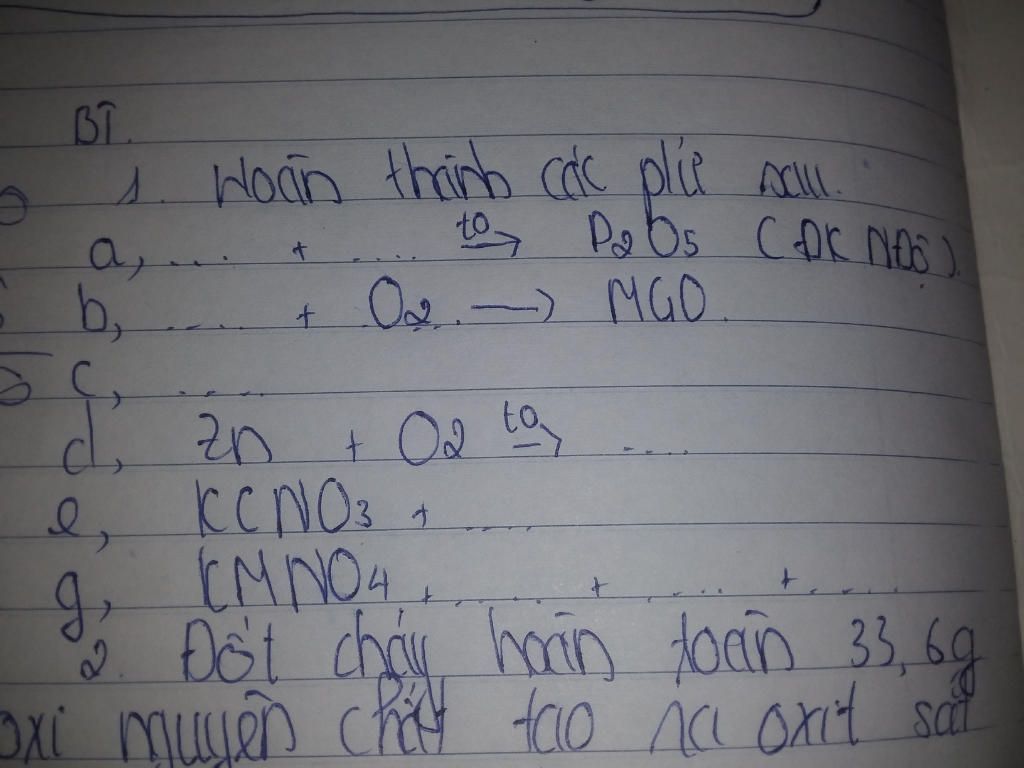 BT.
1. Hoàn thành các pứ sau.
a, .... + .... to→ P2O5 (ĐK NĐộ).
b, .... + O2 ...→ MGO.
c, ....
d, Zn + O2 to→ ....
e, KCNO3 + ....
g, KMNO4 + .... + .... + ....
2. Đốt cháy hoàn toàn 33,6g
oxi nguyên chất tạo ra oxit sắt